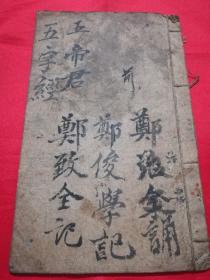 鄭金誦
鄭俊學記
五帝君
五字經
鄭致全記